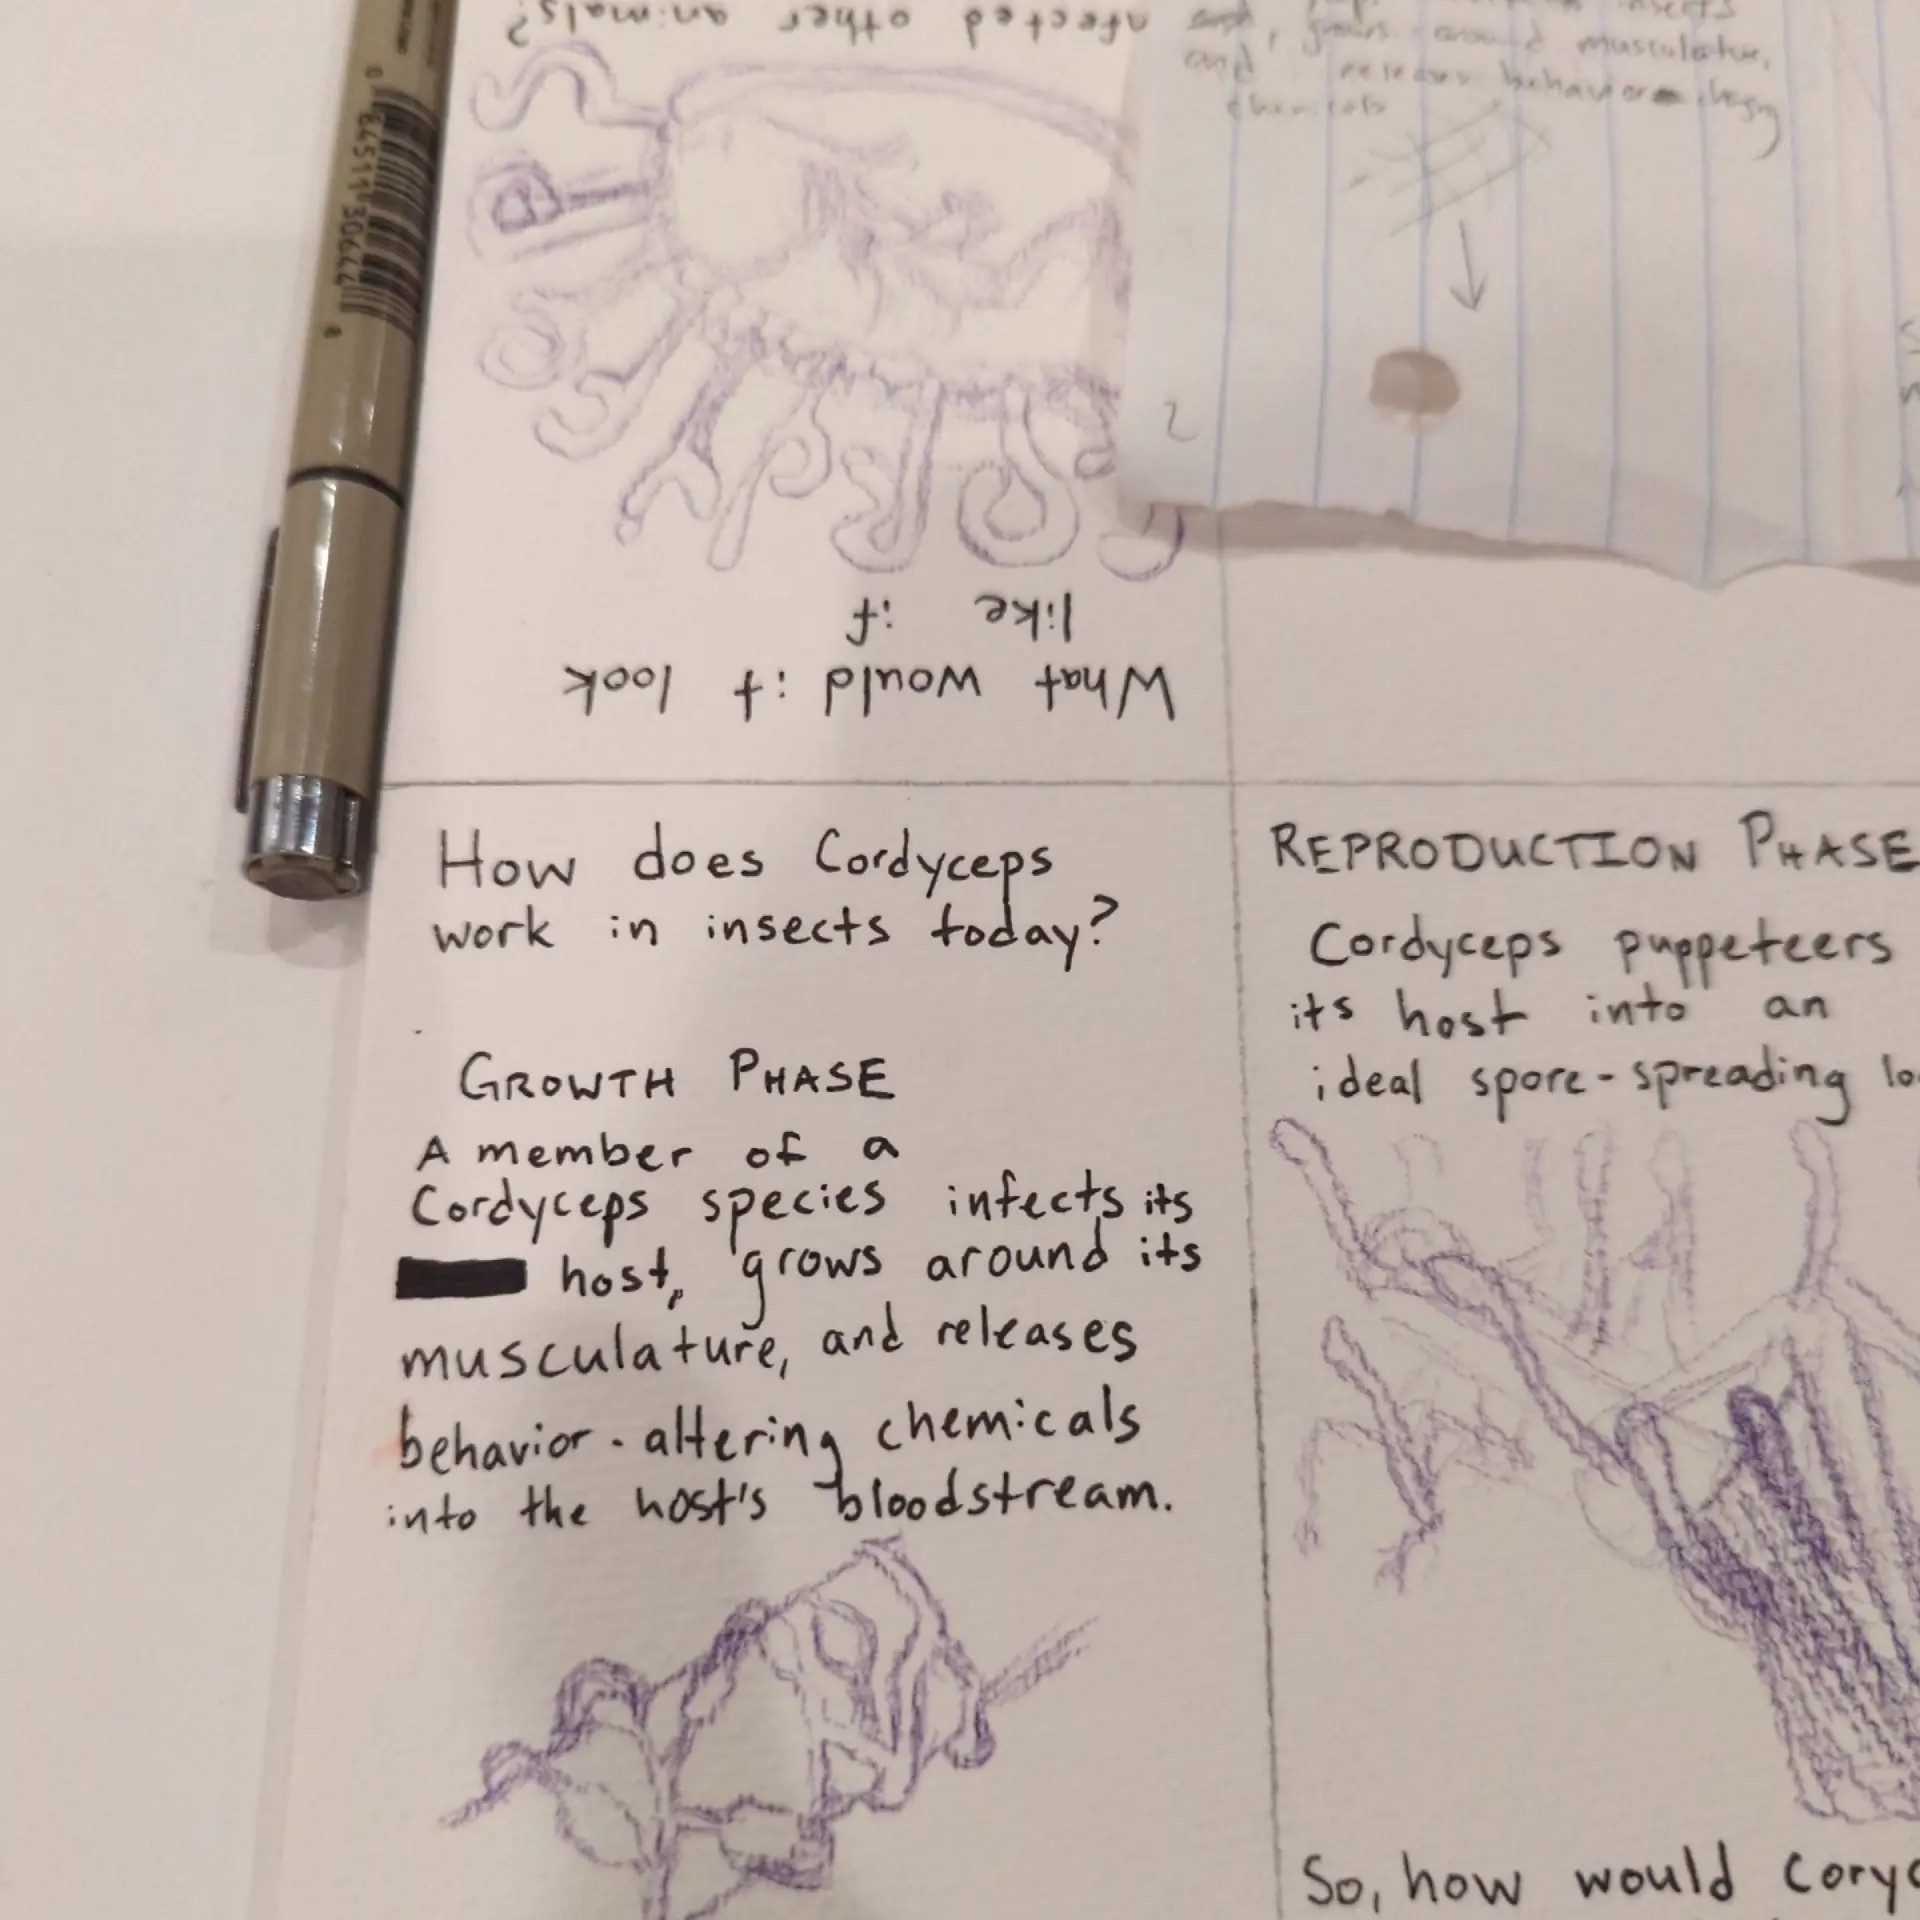 affected other animals?
What would it look
like if
and
, grows around musculature,
and releases behavior-
chemicals
2
How does Cordyceps
work in insects today?
GROWTH PHASE
A member of a
Cordyceps species infects its
host, grows around its
musculature, and releases
behavior-altering chemicals
into the host's bloodstream.
REPRODUCTION PHASE
Cordyceps puppeteers
its host into an
ideal spore-spreading lo
So, how would coryc